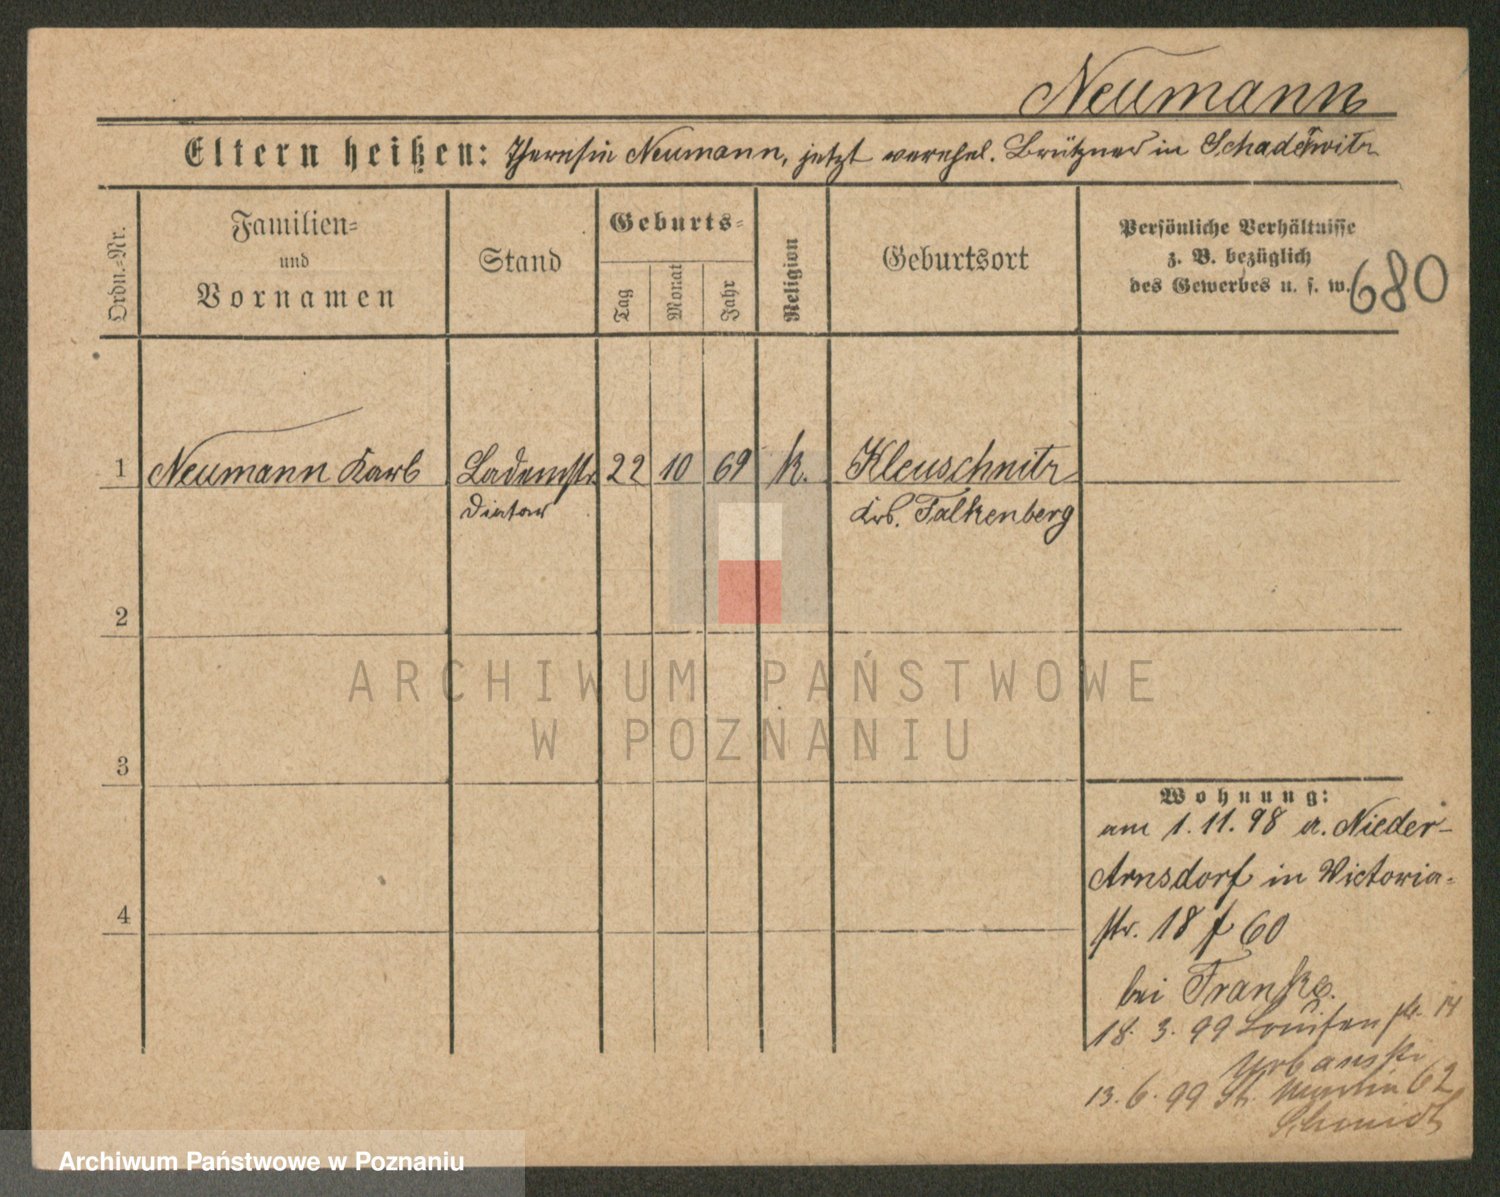 Neumann
Eltern heißen: Theresia Neumann, jetzt verehel. Brützner in Schadewitz
Ordn.-Nr.
Familien-
und
Vornamen
Stand
Geburts-
Tag
Monat
Jahr
Religion
Geburtsort
Persönliche Verhältnisse
z. B. bezüglich
des Gewerbes u. s. w.
680
1 Neumann Karl Lademstr. 22 10 69 k. Kleuschnitz
Diätar Krs. Falkenberg
2
3
4
Wohnung:
am 1.11.98 a. Nieder-
Arnsdorf in Victoria-
str. 18 f 60
bei Franke.
18. 3. 99 Louisen str. 14
Urbanski
13. 6. 99 St. Martin 62
Schmidt
ARCHIWUM PAŃSTWOWE
W POZNANIU
Archiwum Państwowe w Poznaniu